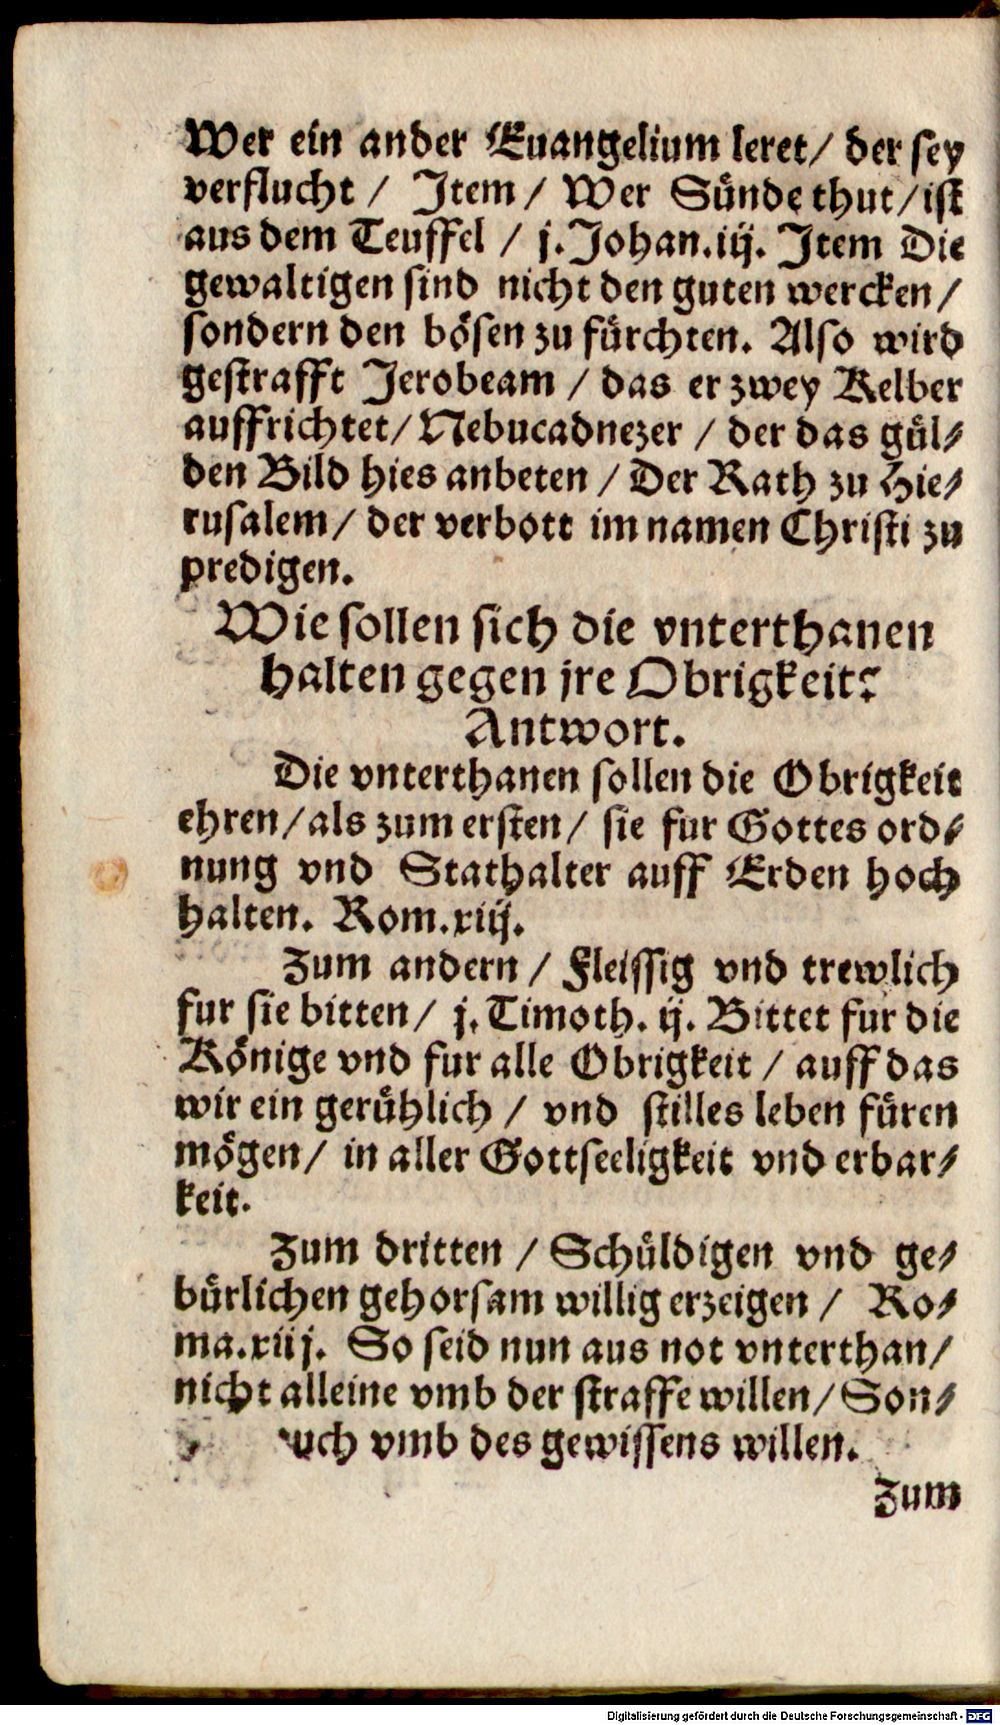 Wer ein ander Euangelium leret/ der sey
verflucht / Item / Wer Sünde thut/ist
aus dem Teuffel / j. Johan. iij. Item Die
gewaltigen sind nicht den guten wercken/
sondern den bösen zu fürchten. Also wird
gestrafft Jerobeam / das er zwey Kelber
auffrichtet/ Nebucadnezer / der das gül-
den Bild hies anbeten / Der Rath zu Hie-
rusalem/ der verbott im namen Christi zu
predigen.
Wie sollen sich die vnterthanen
halten gegen jre Obrigkeit?
Antwort.
Die vnterthanen sollen die Obrigkeit
ehren/als zum ersten/ sie fur Gottes ord-
nung vnd Stathalter auff Erden hoch
halten. Rom. xiij.
Zum andern / Fleissig vnd trewlich
fur sie bitten/ j. Timoth. ij. Bittet fur die
Könige vnd fur alle Obrigkeit / auff das
wir ein gerühlich / vnd stilles leben füren
mögen/ in aller Gottseeligkeit vnd erbar-
keit.
Zum dritten / Schüldigen vnd ge-
bürlichen gehorsam willig erzeigen / Ro-
ma. xiij. So seid nun aus not vnterthan/
nicht alleine vmb der straffe willen/ Son-
uch vmb des gewissens willen.
Zum
Digitalisierung gefördert durch die Deutsche Forschungsgemeinschaft - DFG